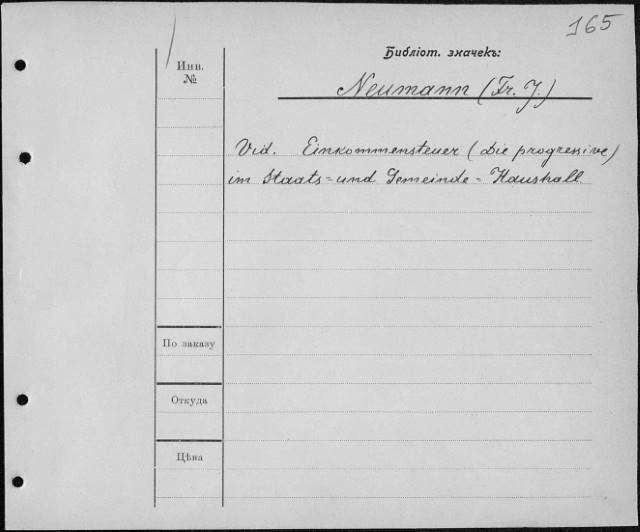 165
Библіот. значекъ:
Инв.
№
Neumann (Fr. J.)
Vid. Einkommensteuer (Die progressive)
im Staats=und Gemeinde=Haushall
По заказу
Откуда
Цѣна